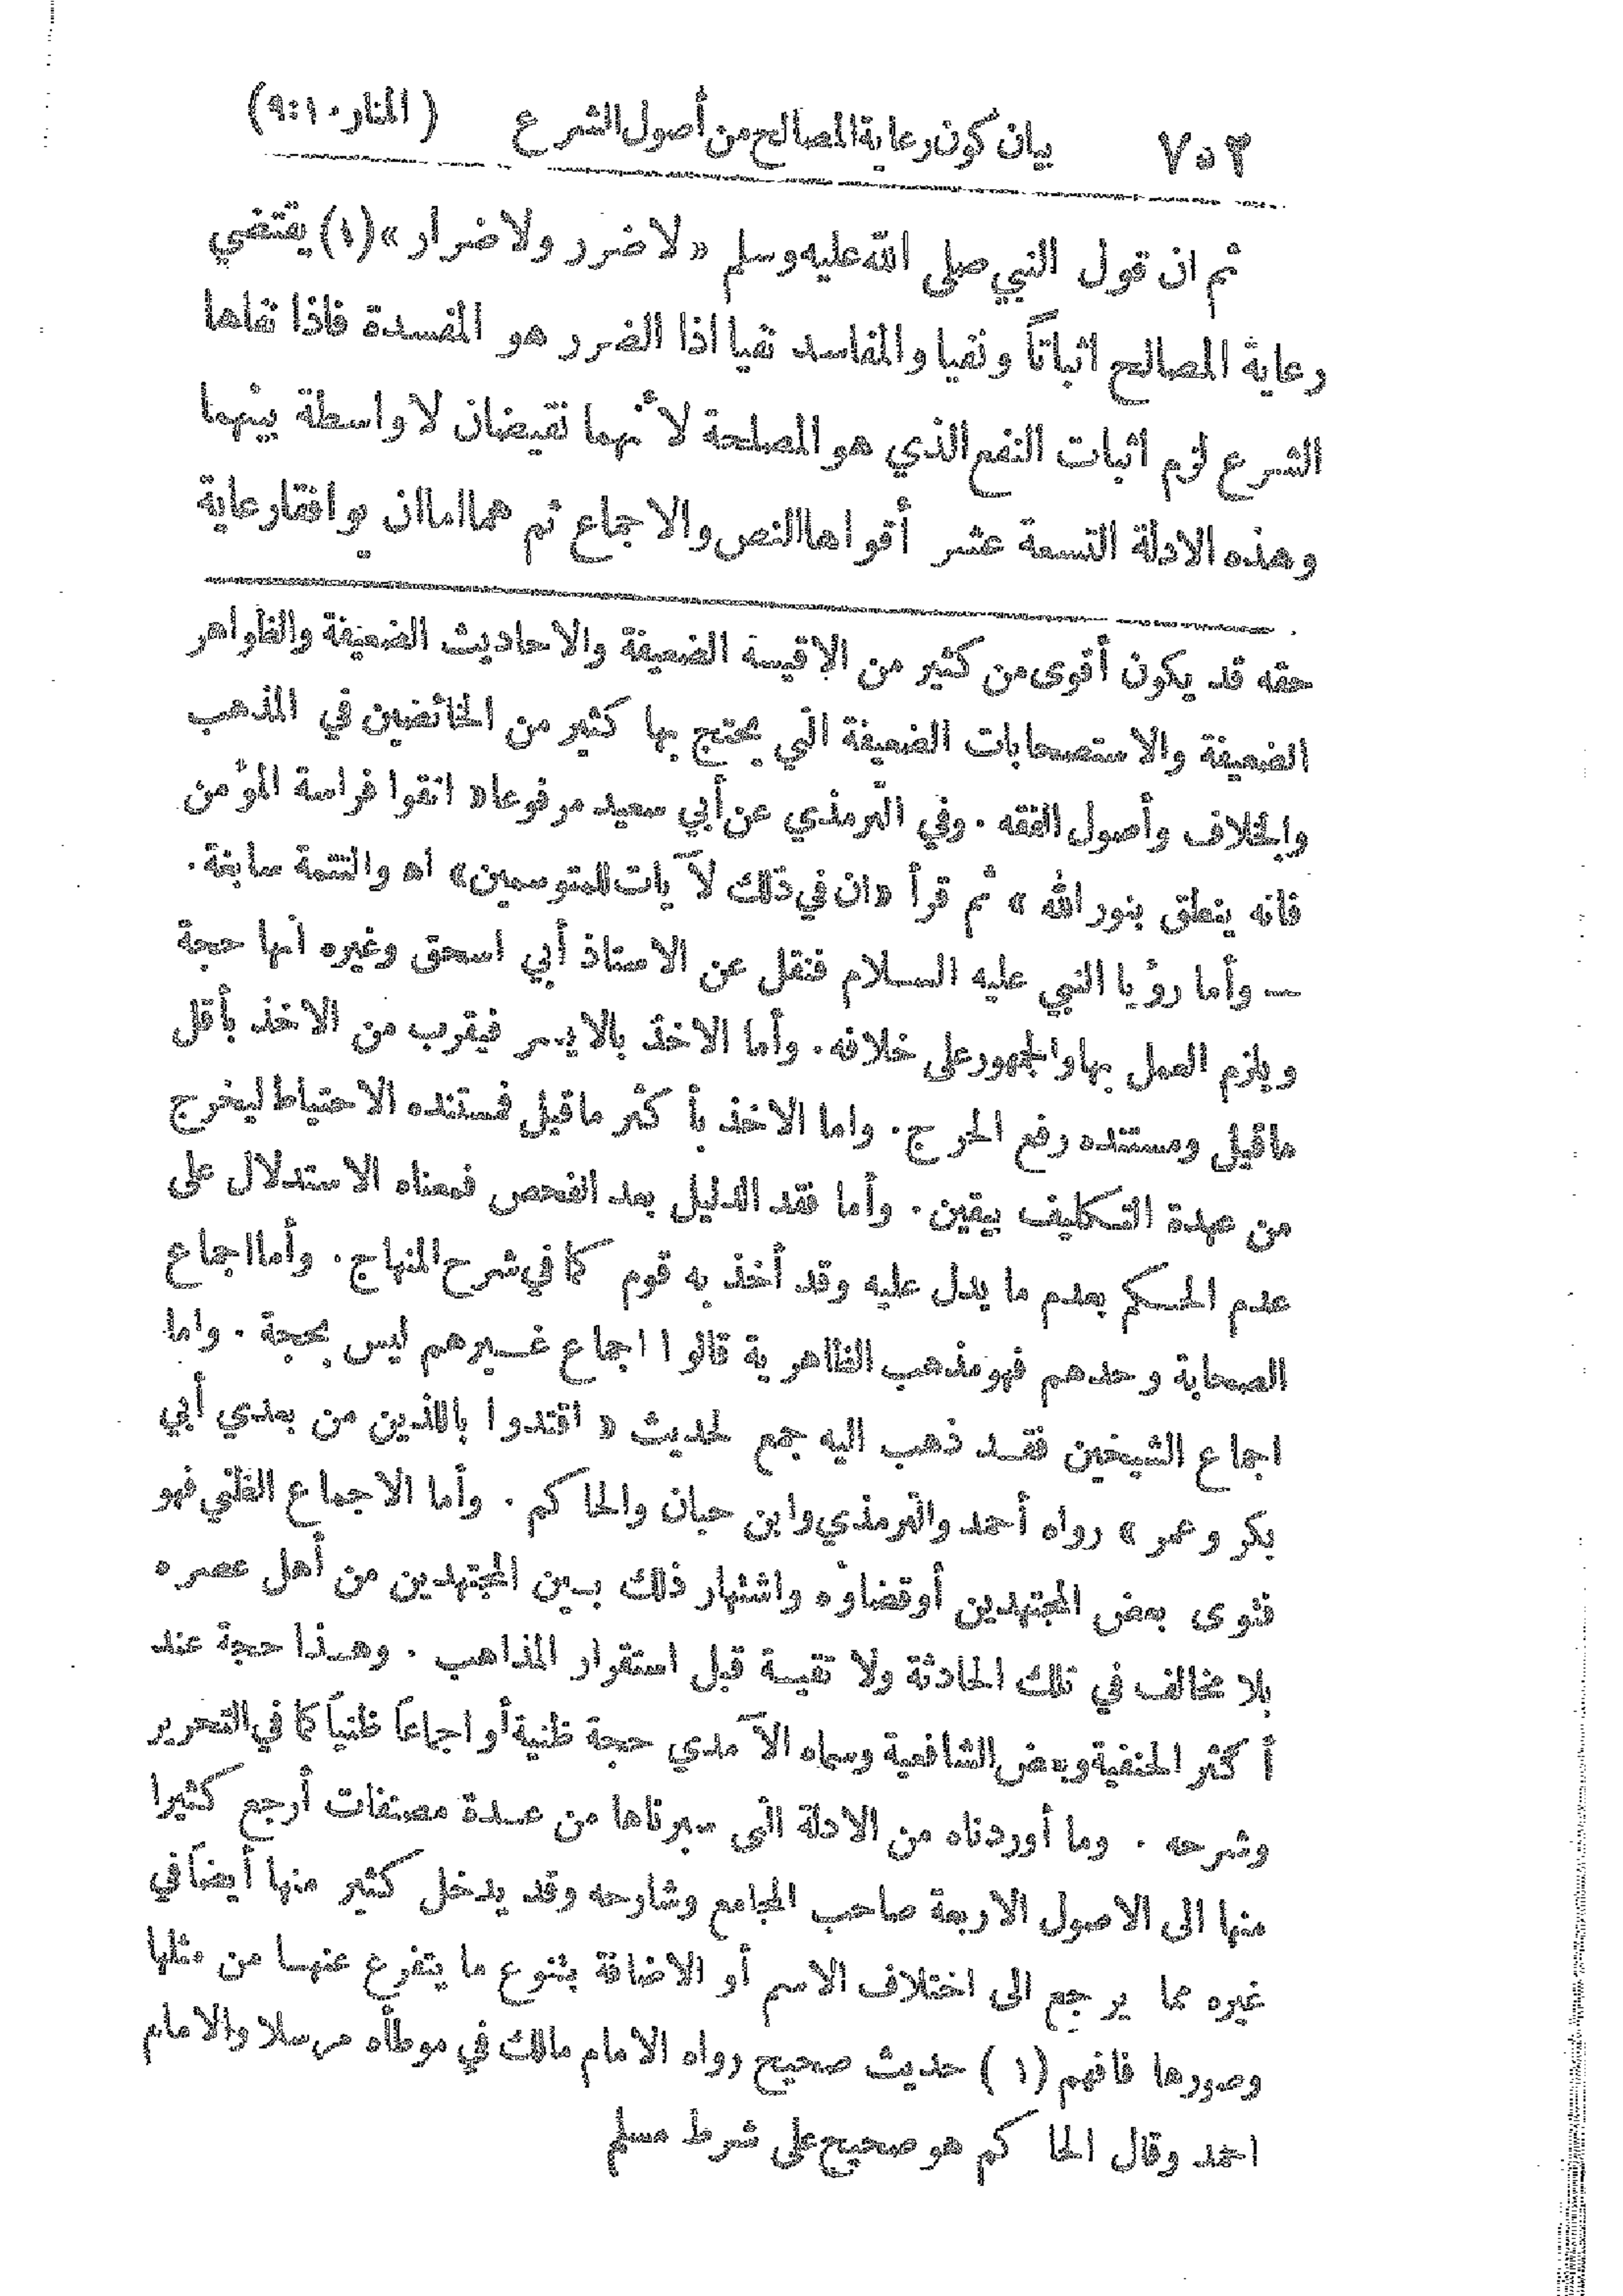 ٧٥٢ بيان كون رعاية المصالح من أصول الشرع ( المنار ١٠:٩)
ثم ان قول النبي صلى الله عليه وسلم «لا ضرر ولا ضرار» (١) يقتضي
رعاية المصالح اثباتاً ونفيا والمفاسد نفيا اذا الضرر هو المفسدة فاذا نفاها
الشرع لزم اثبات النفع الذي هو المصلحة لأنهما نقيضان لا واسطة بينهما
وهذه الادلة التسعة عشر أقواها النص والاجماع ثم هما اما ان يوافقا رعاية
حقه قد يكون أقوى من كثير من الاقيسة الضعيفة والاحاديث الضعيفة والظواهر
الضعيفة والاستصحابات الضعيفة التي يحتج بها كثير من الخائضين في المذهب
والخلاف وأصول الفقه . وفي الترمذي عن أبي سعيد مرفوعا « اتقوا فراسة المؤمن
فانه ينطق بنور الله » ثم قرأ «ان في ذلك لآيات للمتوسمين» اه والتتمة سابغة .
— وأما رؤيا النبي عليه السلام فنقل عن الاستاذ أبي اسحق وغيره انها حجة
ويلزم العمل بها والجمهور على خلافه . وأما الاخذ بالايسر فيقرب من الاخذ بأقل
ماقيل ومستنده رفع الحرج . واما الاخذ بأكثر ماقيل فمستنده الاحتياط ليخرج
من عهدة التكليف بيقين . وأما فقد الدليل بعد الفحص فمعناه الاستدلال على
عدم الحكم بعدم ما يدل عليه وقد أخذ به قوم كما في شرح المنهاج . وأما اجماع
الصحابة وحدهم فهو مذهب الظاهرية قالوا اجماع غيرهم ليس بحجة . واما
اجماع الشيخين فقد ذهب اليه جمع لحديث « اقتدوا باللذين من بعدي أبي
بكر وعمر » رواه أحمد والترمذي وابن حبان والحاكم . وأما الاجماع الظني فهو
فتوى بعض المجتهدين أو قضاؤه واشتهار ذلك بين المجتهدين من أهل عصره
بلا مخالف في تلك الحادثة ولا تقية قبل استقرار المذاهب . وهذا حجة عند
أكثر الحنفية وبعض الشافعية وسماه الآمدي حجة ظنية أو اجماعاً ظنياً كما في التحرير
وشرحه . وما أوردناه من الادلة التي سبرناها من عدة مصنفات أرجع كثيرا
منها الى الاصول الاربعة صاحب الجامع وشارحه وقد يدخل كثير منها أيضاً في
غيره مما يرجع الى اختلاف الاسم أو الاضافة بتنوع ما يتفرع عنها من مثلها
وصورها فافهم (١) حديث صحيح رواه الامام مالك في موطأه مرسلا والامام
احمد وقال الحاكم هو صحيح على شرط مسلم